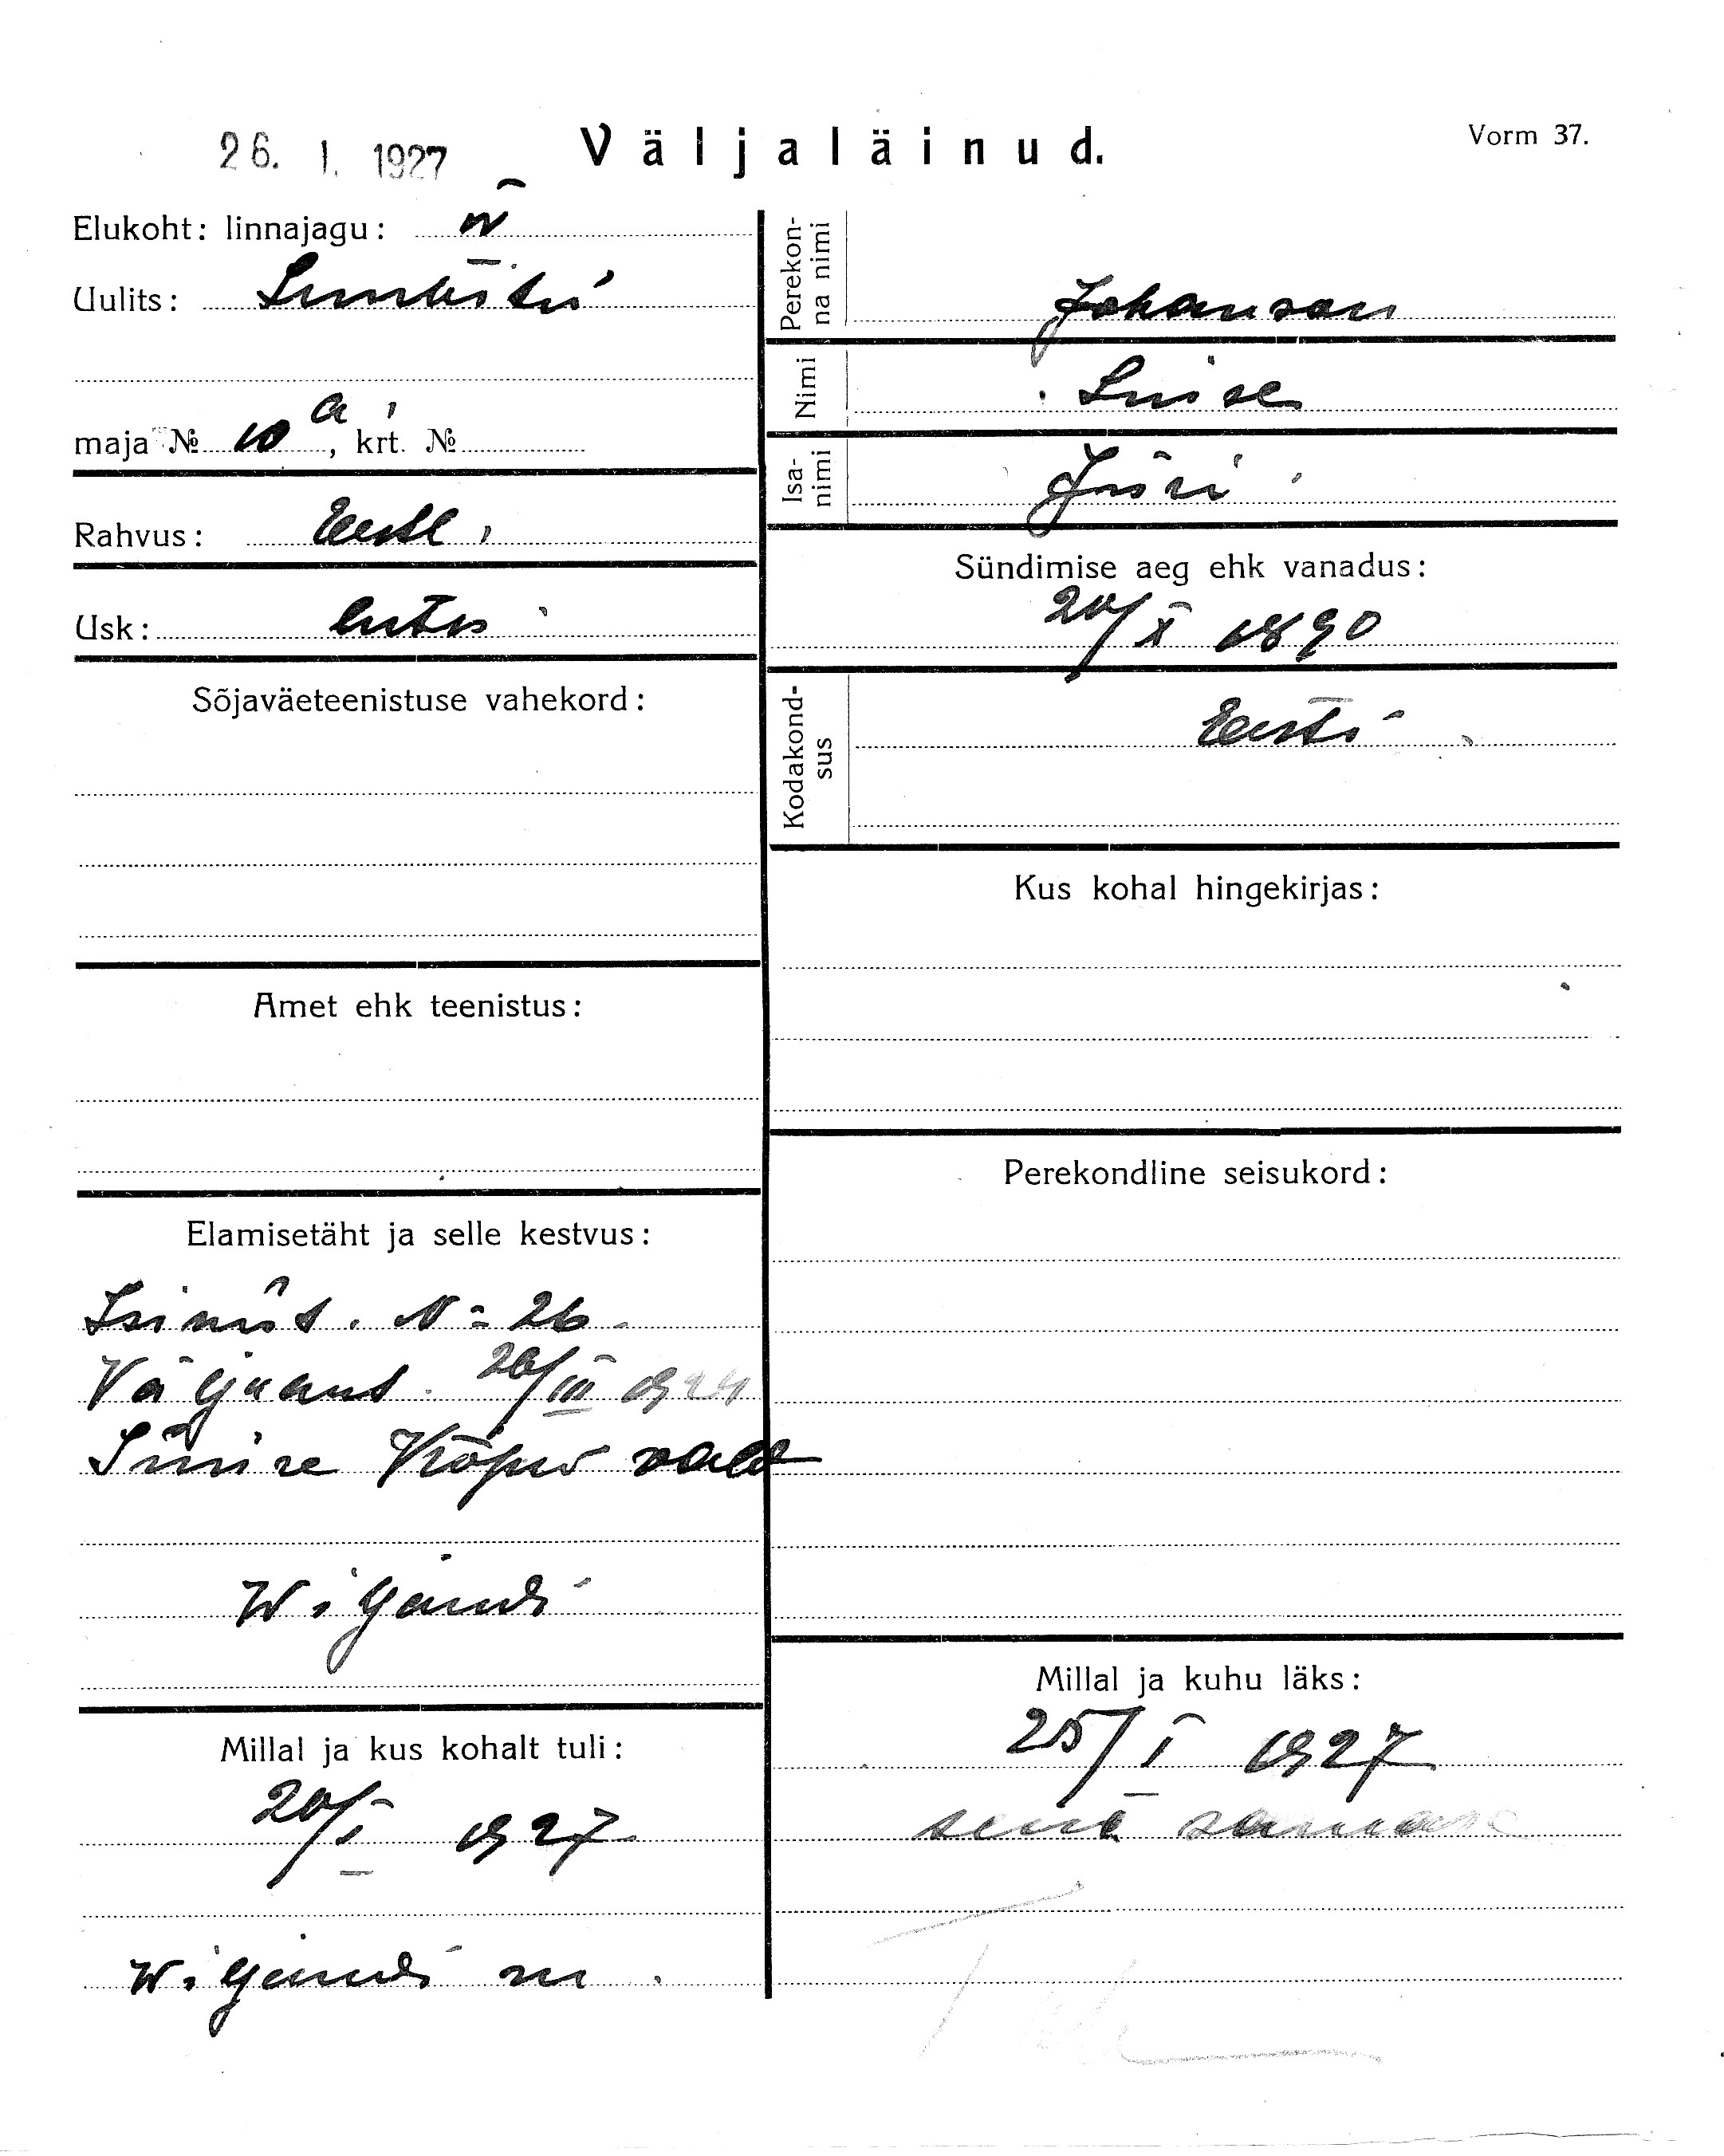 26. I. 1927
Väljaläinud.
Vorm 37.
Elukoht: linnajagu: IV
Uulits: Lembitu
maja № 10 a, krt. №
Rahvus: Eestl.
Usk: luter
Sõjaväeteenistuse vahekord:
Amet ehk teenistus:
Elamisetäht ja selle kestvus:
Isikut. N= 26
Väljaant. 26/III 1924
Suure Kõpu vald
Wiljandi
Millal ja kus kohalt tuli:
20/I 1927
Wiljandi m.
Perekon-
na nimi
Johanson
Nimi
Luise
Isa-
nimi
Jüri
Sündimise aeg ehk vanadus:
20/X 1890
Kodakond-
sus
Eesti
Kus kohal hingekirjas:
Perekondline seisukord:
Millal ja kuhu läks:
25/I 1927
senna samasse